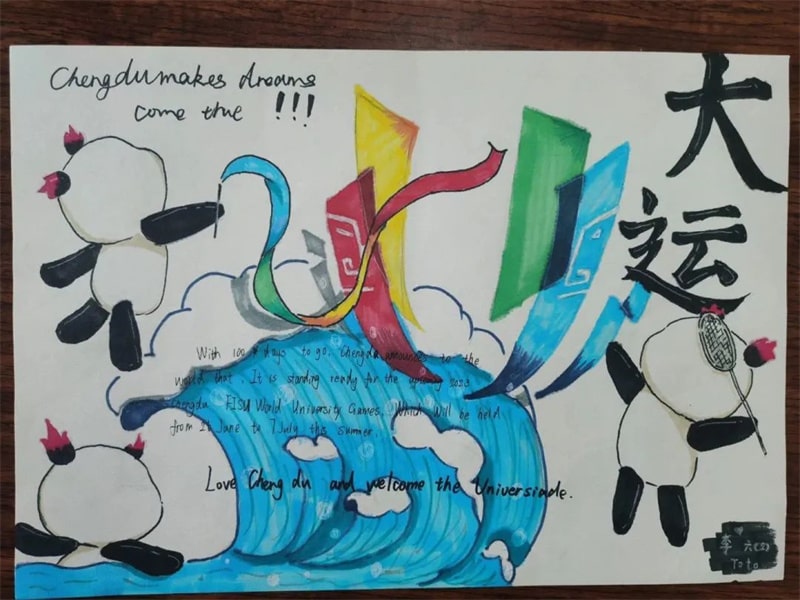 Chengdu makes dreams
come true !!!
大
运
With 100 days to go, Chengdu announces to the
world that, It is standing ready for the upcoming 2023
Chengdu FISU World University Games, Which Will be held
from June to 7 July this summer.
Love Cheng du and welcome the Universiade.
李 六(2)
Toto